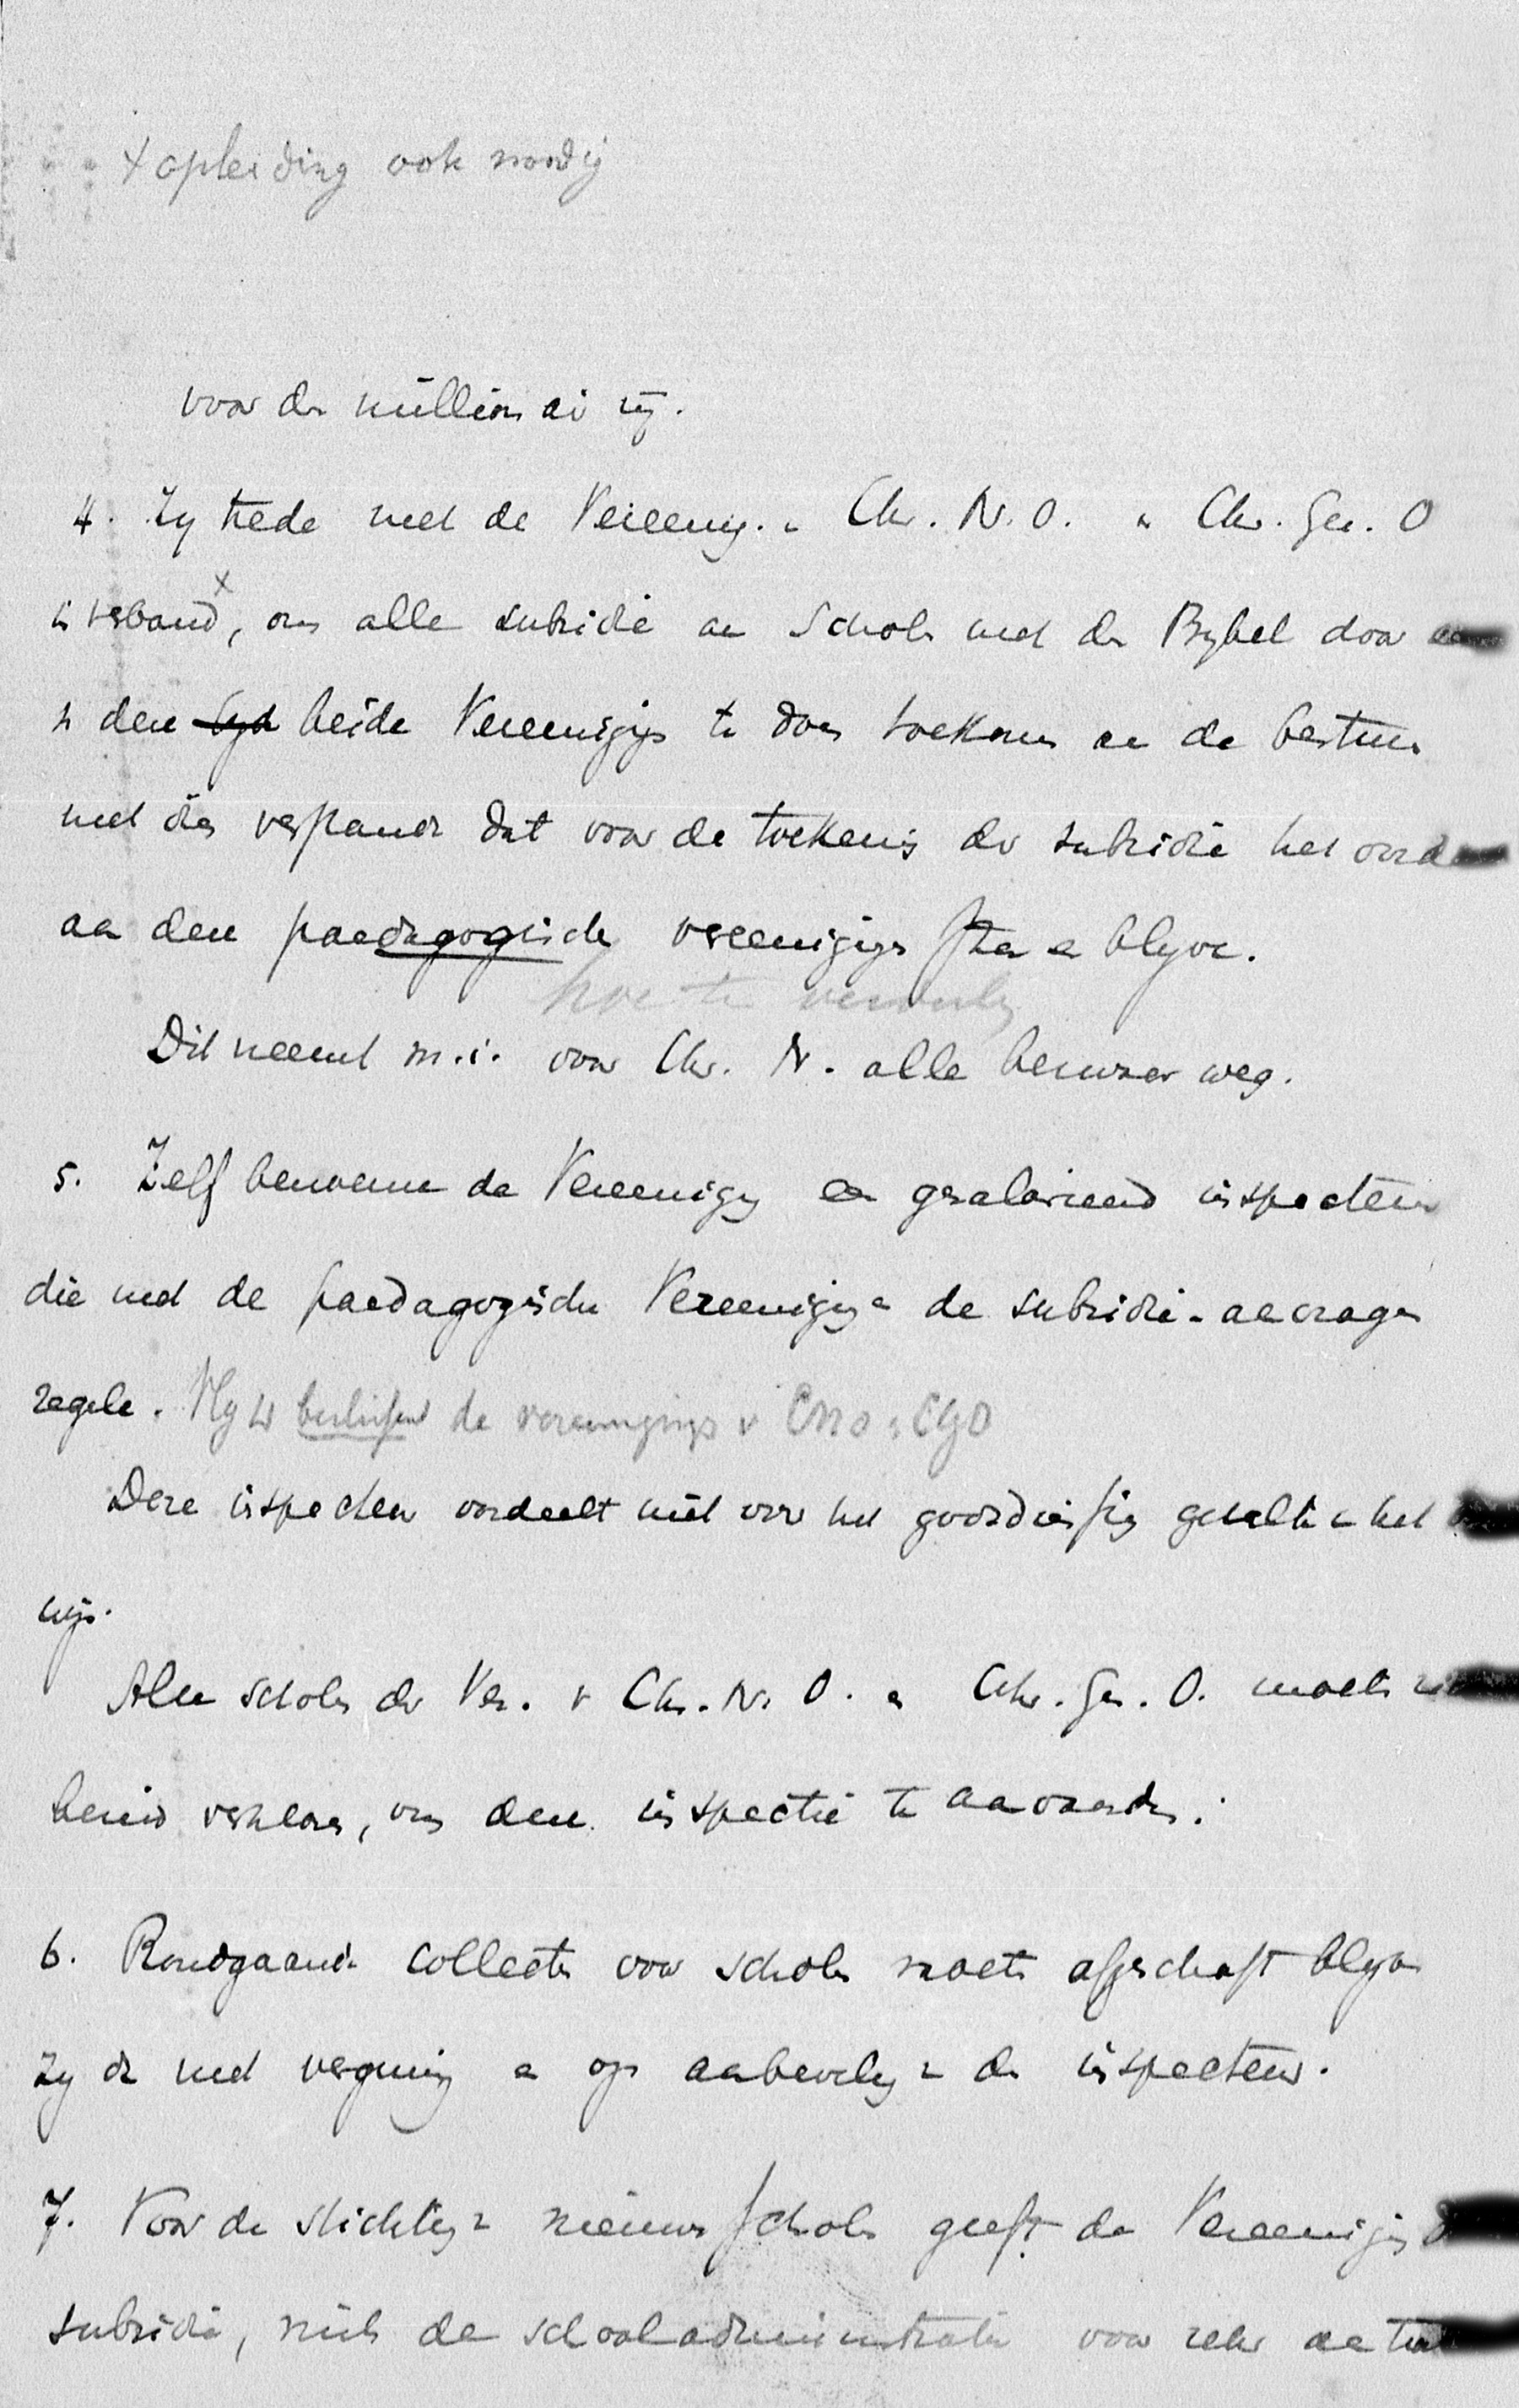 x opleiding ook noodig
voor den
4. Zy trede met de Vereenig. v Chr. N. O. en Chr. Ger. O
in verband x, om alle subsidie aan Scholen met den Bybel door
v deze beide Vereenigingen te doen toekomen aan de besturen
met dien verstande dat voor de toekening der subsidie het oordeel
aan deze paedagogische vereenigingen sta en blyve.
hoe te
Dit neemt m.i. voor Chr. N. alle bezwaar weg.
5. Zelf benoeme de Vereeniging een gesalarieerd inspecteur
die met de paedagogische Vereenigingen de subsidie-aanvragen
regele. Hy de vereenigingen v CNO en CGO
Deze inspecteur oordeelt niet over het godsdienstig gehalte v het
wijs.
Alle scholen der Ver. v Chr. N. O. en Chr. Ger. O. moeten
bereid verklaren, om deze inspectie te aanvaarden.
6. Rondgaande collecten voor scholen moeten afgeschaft blyven
zy ze met vergunning en op aanbeveling v den inspecteur.
7. Voor de stichting v nieuwe scholen geeft de Vereeniging
subsidie, mits de schooladministratie voor zeker aantal